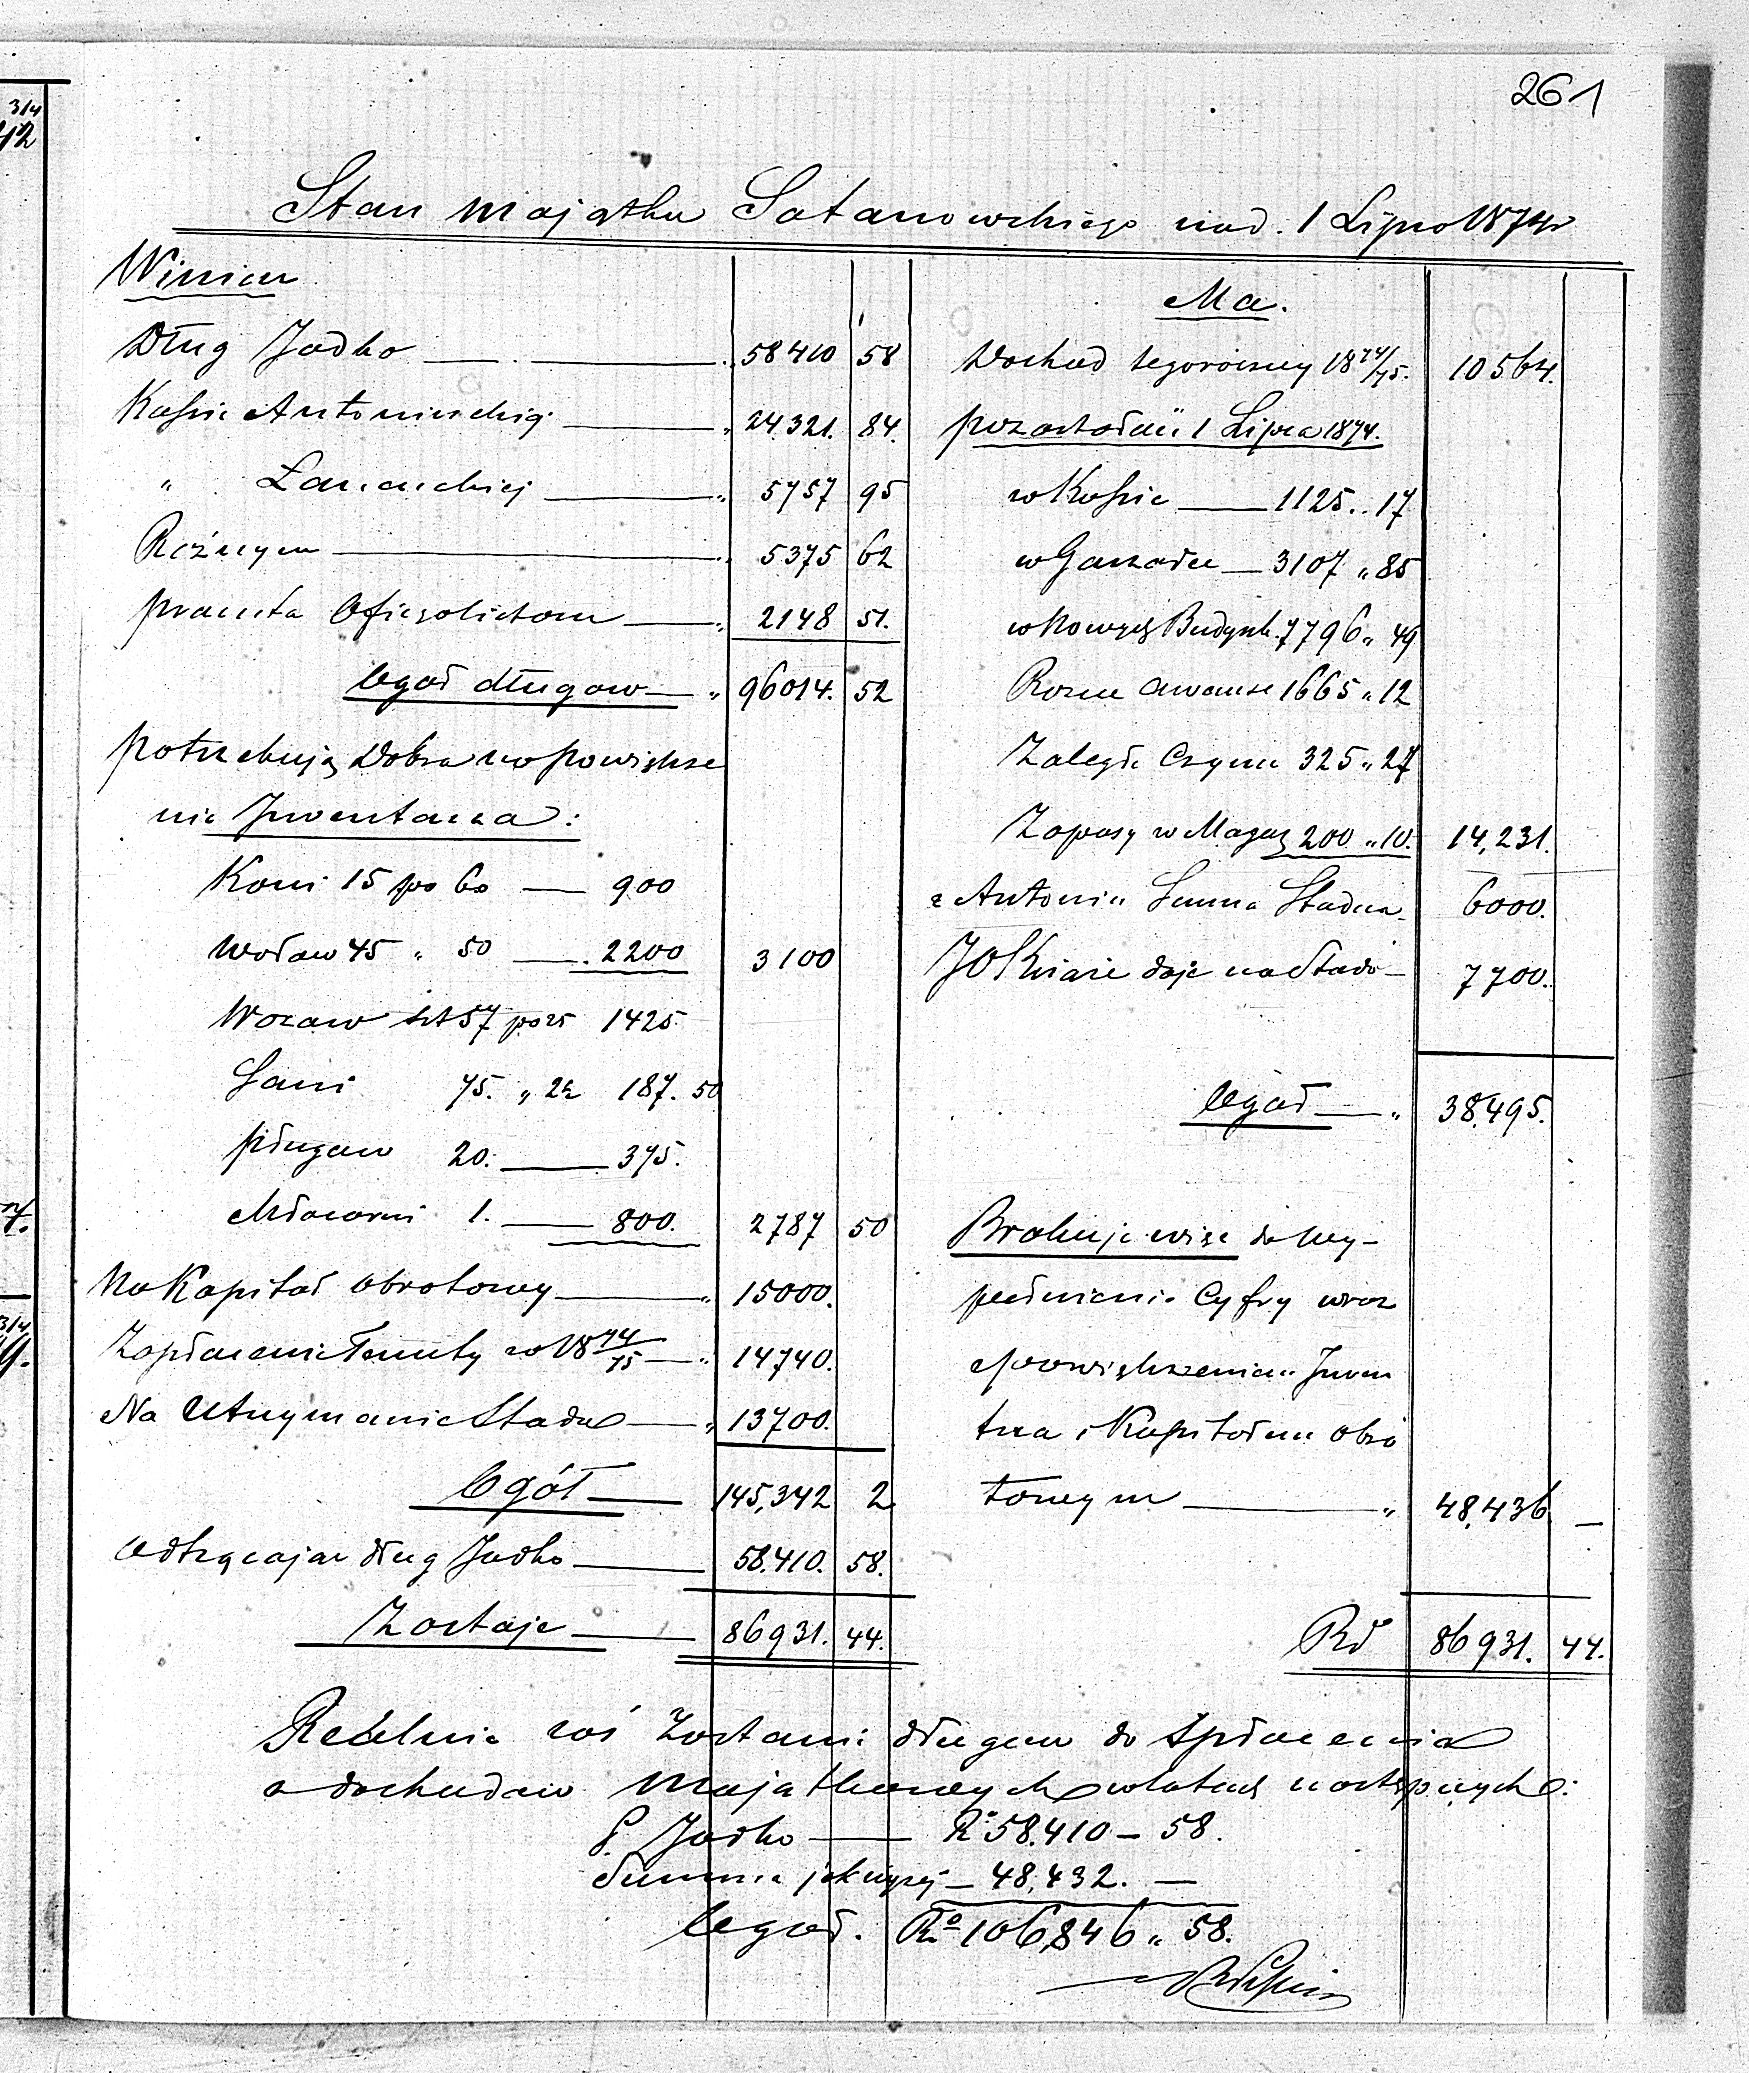 261
3/4
42
Stan majątku Satanowskiego nad. 1 Lipca 1874r
Winien
Dług Jodko — 58410 58
Kassie Antonińskiej — " 24.321. 84.
" Łanieckiej — " 5757 95
Różnym — " 5375 62
Procenta Oficjalistom — " 2148 51.
Ogół długow — " 96014. 52
Potrzebują Dobra na powiększe
nie Inwentarza:
Koni 15 po 60 — 900
Wołow 45 " 50 — 2200 3100
Wozow szt 57 po 25 1425.
Sani 75. " 2½ 187. 50
Pługow 20. — 375.
Młocarni 1. — 800. 2787 50
Na Kapitał obrotowy — " 15000.
Zapłacenie Tenuty w 18 74/75 — " 14740.
Na Utrzymanie Stada — " 13700.
Ogół — 145,342 2
Odtrącając dług Jodko — 58.410. 58.
Zostaje — 86931. 44.
Ma.
Dochod tegoroczny 18 74/75. 10564.
Pozostałość 1 Lipca 1874.
w Kassie — 1125.. 17
w Gorzelni — 3107 " 85
w Nowych Budynk. 7796 " 49
Rozne Awanse 1665 " 12
Zaległe Czynsze 325 " 27
Zapasy w Magaz 200 " 10. 14,231.
z Antonin Summa Stadna 6000.
JO Książe daje na Stado — 7700.
Ogoł — " 38,495.
Brakuje więc do wy-
pełnienia Cyfry wraz
z powiększeniem Inwen
trza i Kapitałem obro
towym — " 48,436. —
Rs 86931. 44.
Realnie zaś zostanie długow do spłacenia
z dochodow majątkowych w latach następnych:
P. Jodko — Rs 58.410 — 58.
Summa jak wyżej — 48,432. —
Ogoł. Rs 106,846 " 58.